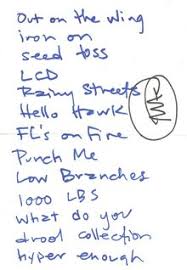 Out on the wing
iron on
seed toss
LCD
Rainy Streets
Hello Hawk
FL's on Fire
Punch Me
Low Branches
1000 LBS
what do you
drool collection
hyper enough